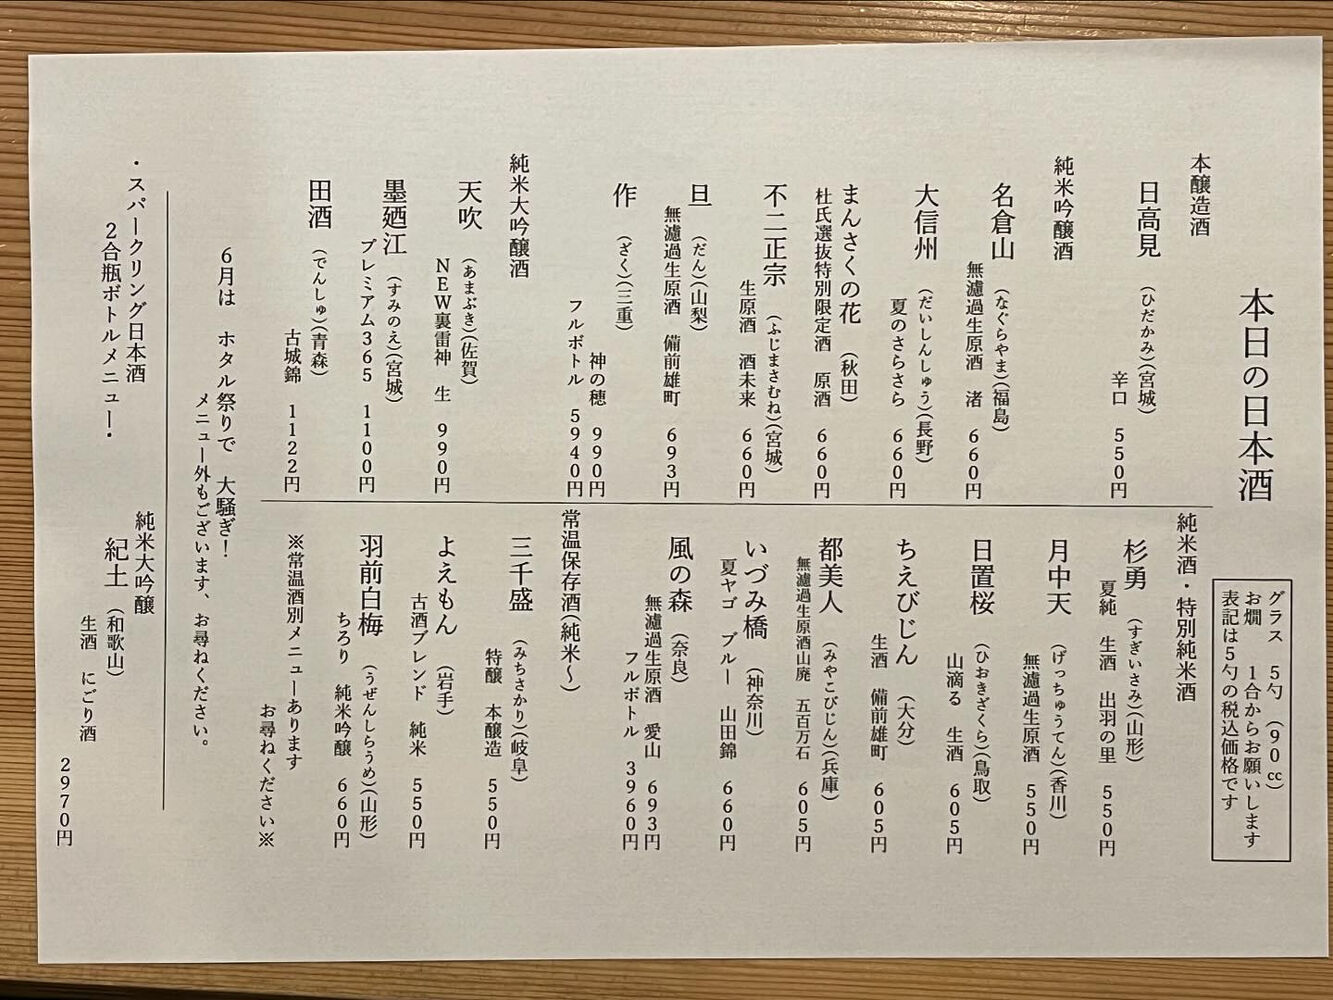 本日の日本酒
グラス　5勺　(90㏄)
お燗　1合からお願いします
表記は5勺の税込価格です
本醸造酒
日高見　(ひだかみ)(宮城)
辛口　550円
純米吟醸酒
名倉山　(なぐらやま)(福島)
無濾過生原酒　渚　660円
大信州　(だいしんしゅう)(長野)
夏のさらさら　660円
まんさくの花　(秋田)
杜氏選抜特別限定酒　原酒　660円
不二正宗　(ふじまさむね)(宮城)
生原酒　酒未来　660円
旦　(だん)(山梨)
無濾過生原酒　備前雄町　693円
作　(ざく)(三重)
神の穂　990円
フルボトル　5940円
純米大吟醸酒
天吹　(あまぶき)(佐賀)
NEW裏雷神　生　990円
墨廼江　(すみのえ)(宮城)
プレミアム365　1100円
田酒　(でんしゅ)(青森)
古城錦　1122円
純米酒・特別純米酒
杉勇　(すぎいさみ)(山形)
夏純　生酒　出羽の里　550円
月中天　(げっちゅうてん)(香川)
無濾過生原酒　550円
日置桜　(ひおきざくら)(鳥取)
山滴る　生酒　605円
ちえびじん　(大分)
生酒　備前雄町　605円
都美人　(みやこびじん)(兵庫)
無濾過生原酒山廃　五百万石　605円
いづみ橋　(神奈川)
夏ヤゴ　ブルー　山田錦　660円
風の森　(奈良)
無濾過生原酒　愛山　693円
フルボトル　3960円
常温保存酒(純米〜)
三千盛　(みちさかり)(岐阜)
特醸　本醸造　550円
よえもん　(岩手)
古酒ブレンド　純米　550円
羽前白梅　(うぜんしらうめ)(山形)
ちろり　純米吟醸　660円
※常温酒別メニューあります
お尋ねください※
6月は　ホタル祭りで　大騒ぎ！
メニュー外もございます、お尋ねください。
・スパークリング日本酒
2合瓶ボトルメニュー・
純米大吟醸
紀土　(和歌山)
生酒　にごり酒
2970円